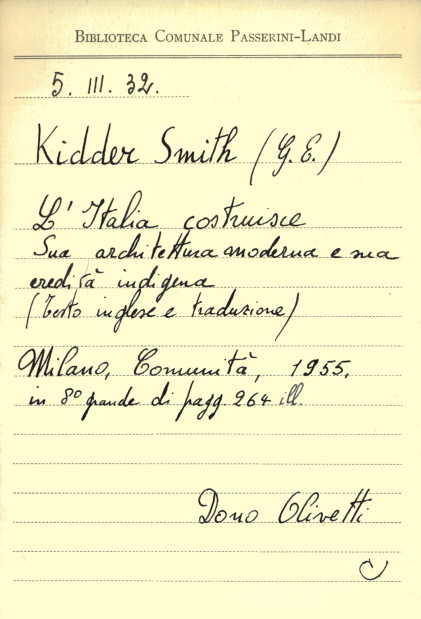 BIBLIOTECA COMUNALE PASSERINI-LANDI
5. III. 32.
Kidder Smith (G. E.)
L'Italia costruisce
Sua architettura moderna e sua
eredità indigena
(Testo inglese e traduzione)
Milano, Comunità, 1955.
in 8º grande di pagg 264 ill.
Dono Olivetti